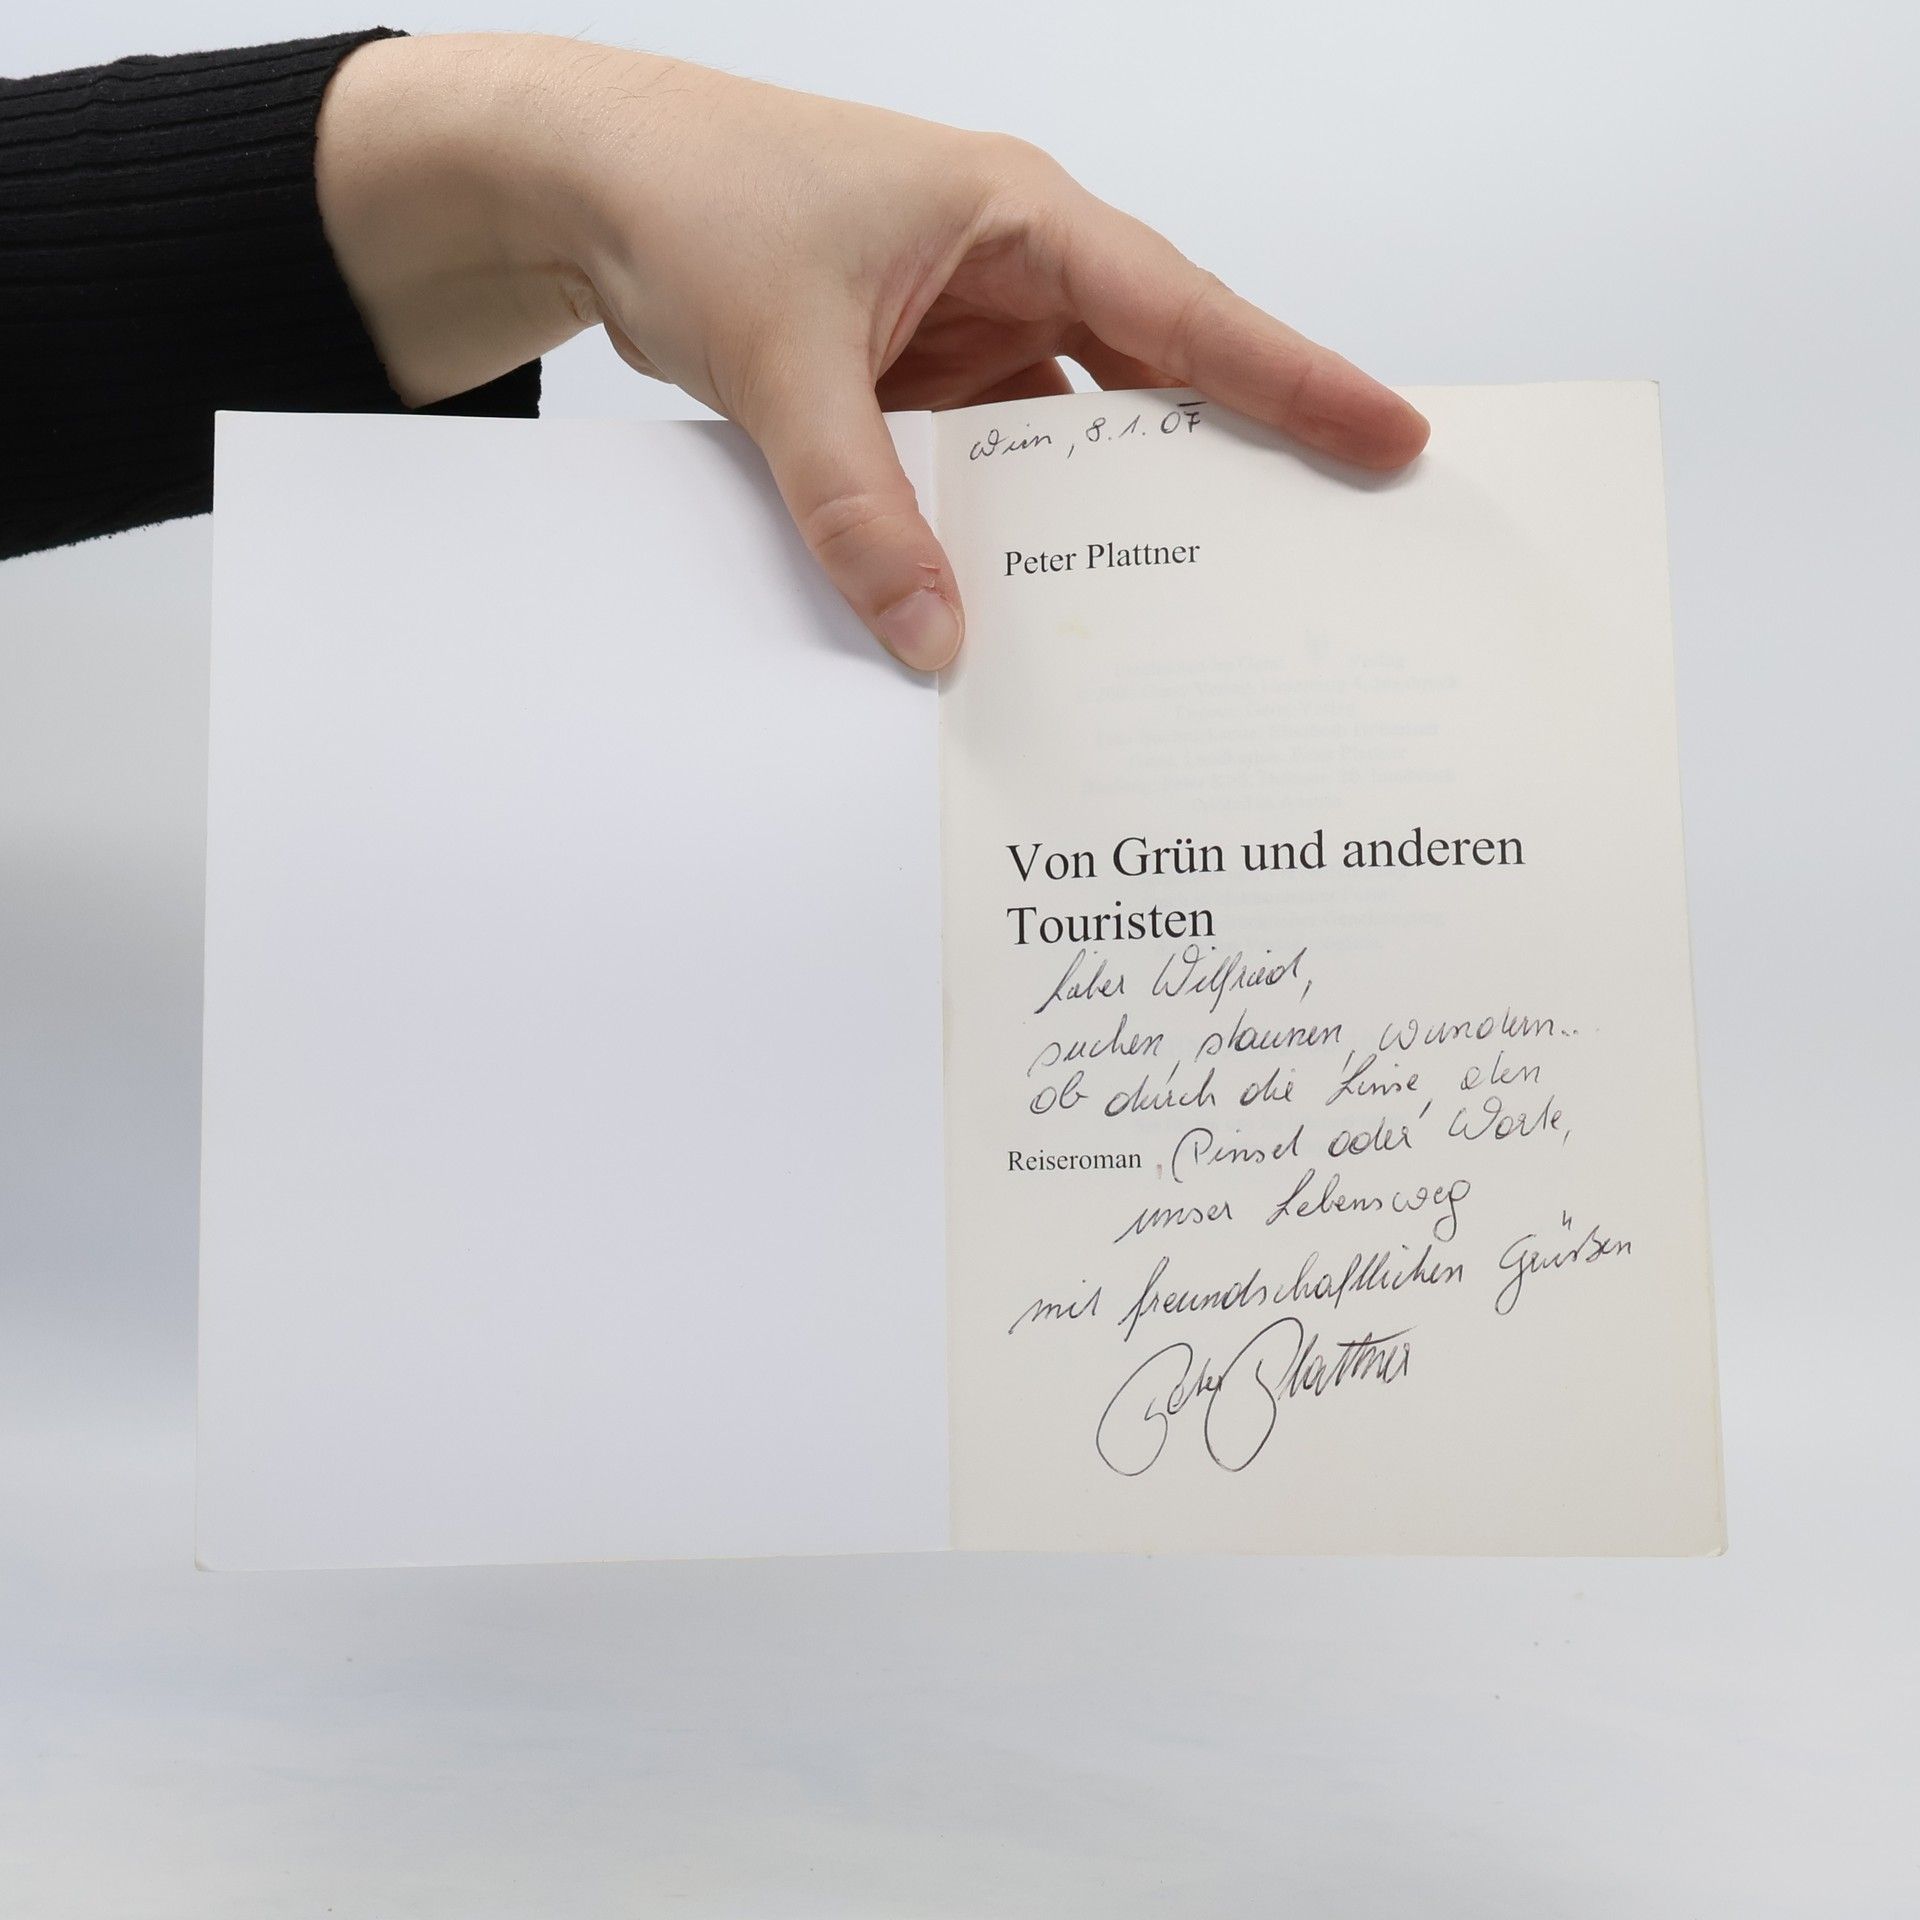 Wien, 8.1.07
Peter Plattner
Von Grün und anderen
Touristen
Lieber Wilfried,
suchen, staunen, wundern..
ob durch die Linse, den
Reiseroman
Pinsel oder Worte,
unser Lebensweg
mit freundschaftlichen Grüßen
Peter Plattner